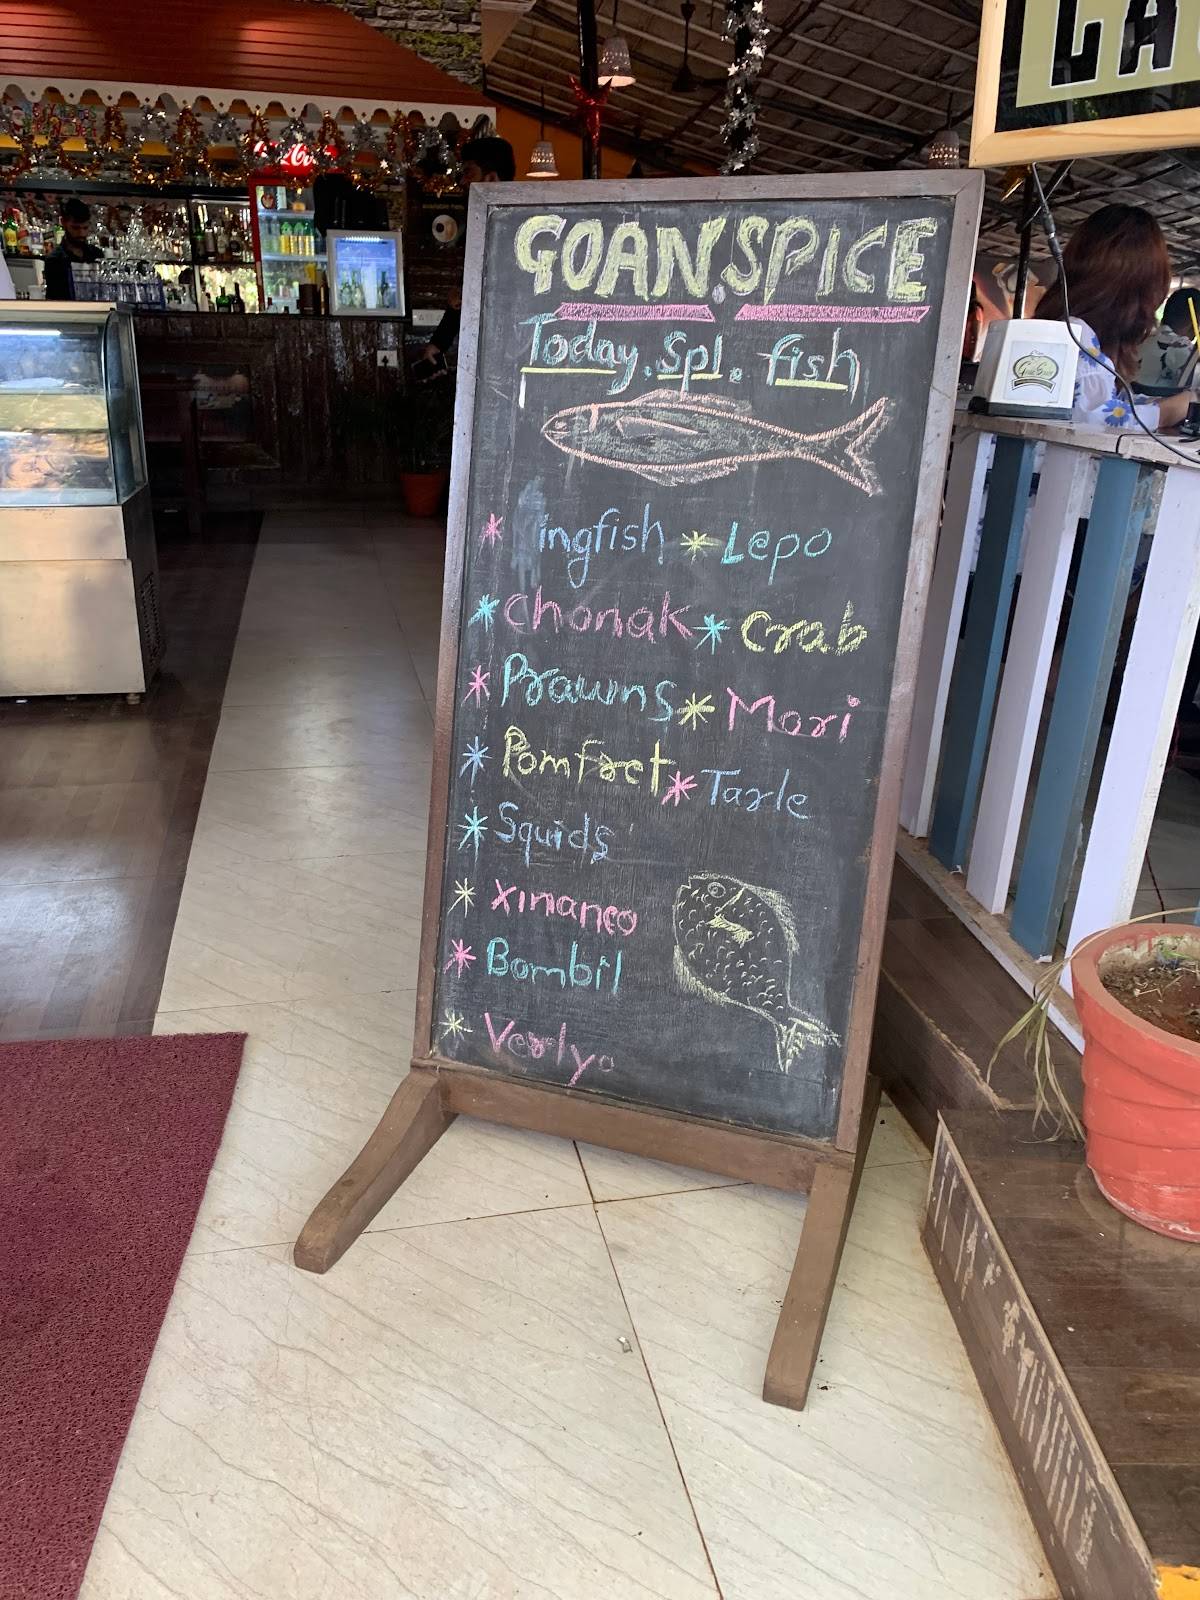 GOAN SPICE
Today. Spl. fish
* ingfish * Lepo
* Chonak * Crab
* Prawns * Mori
* Pomfret * Tarle
* Squids
* Xinaneo
* Bombil
* Verlya
LA